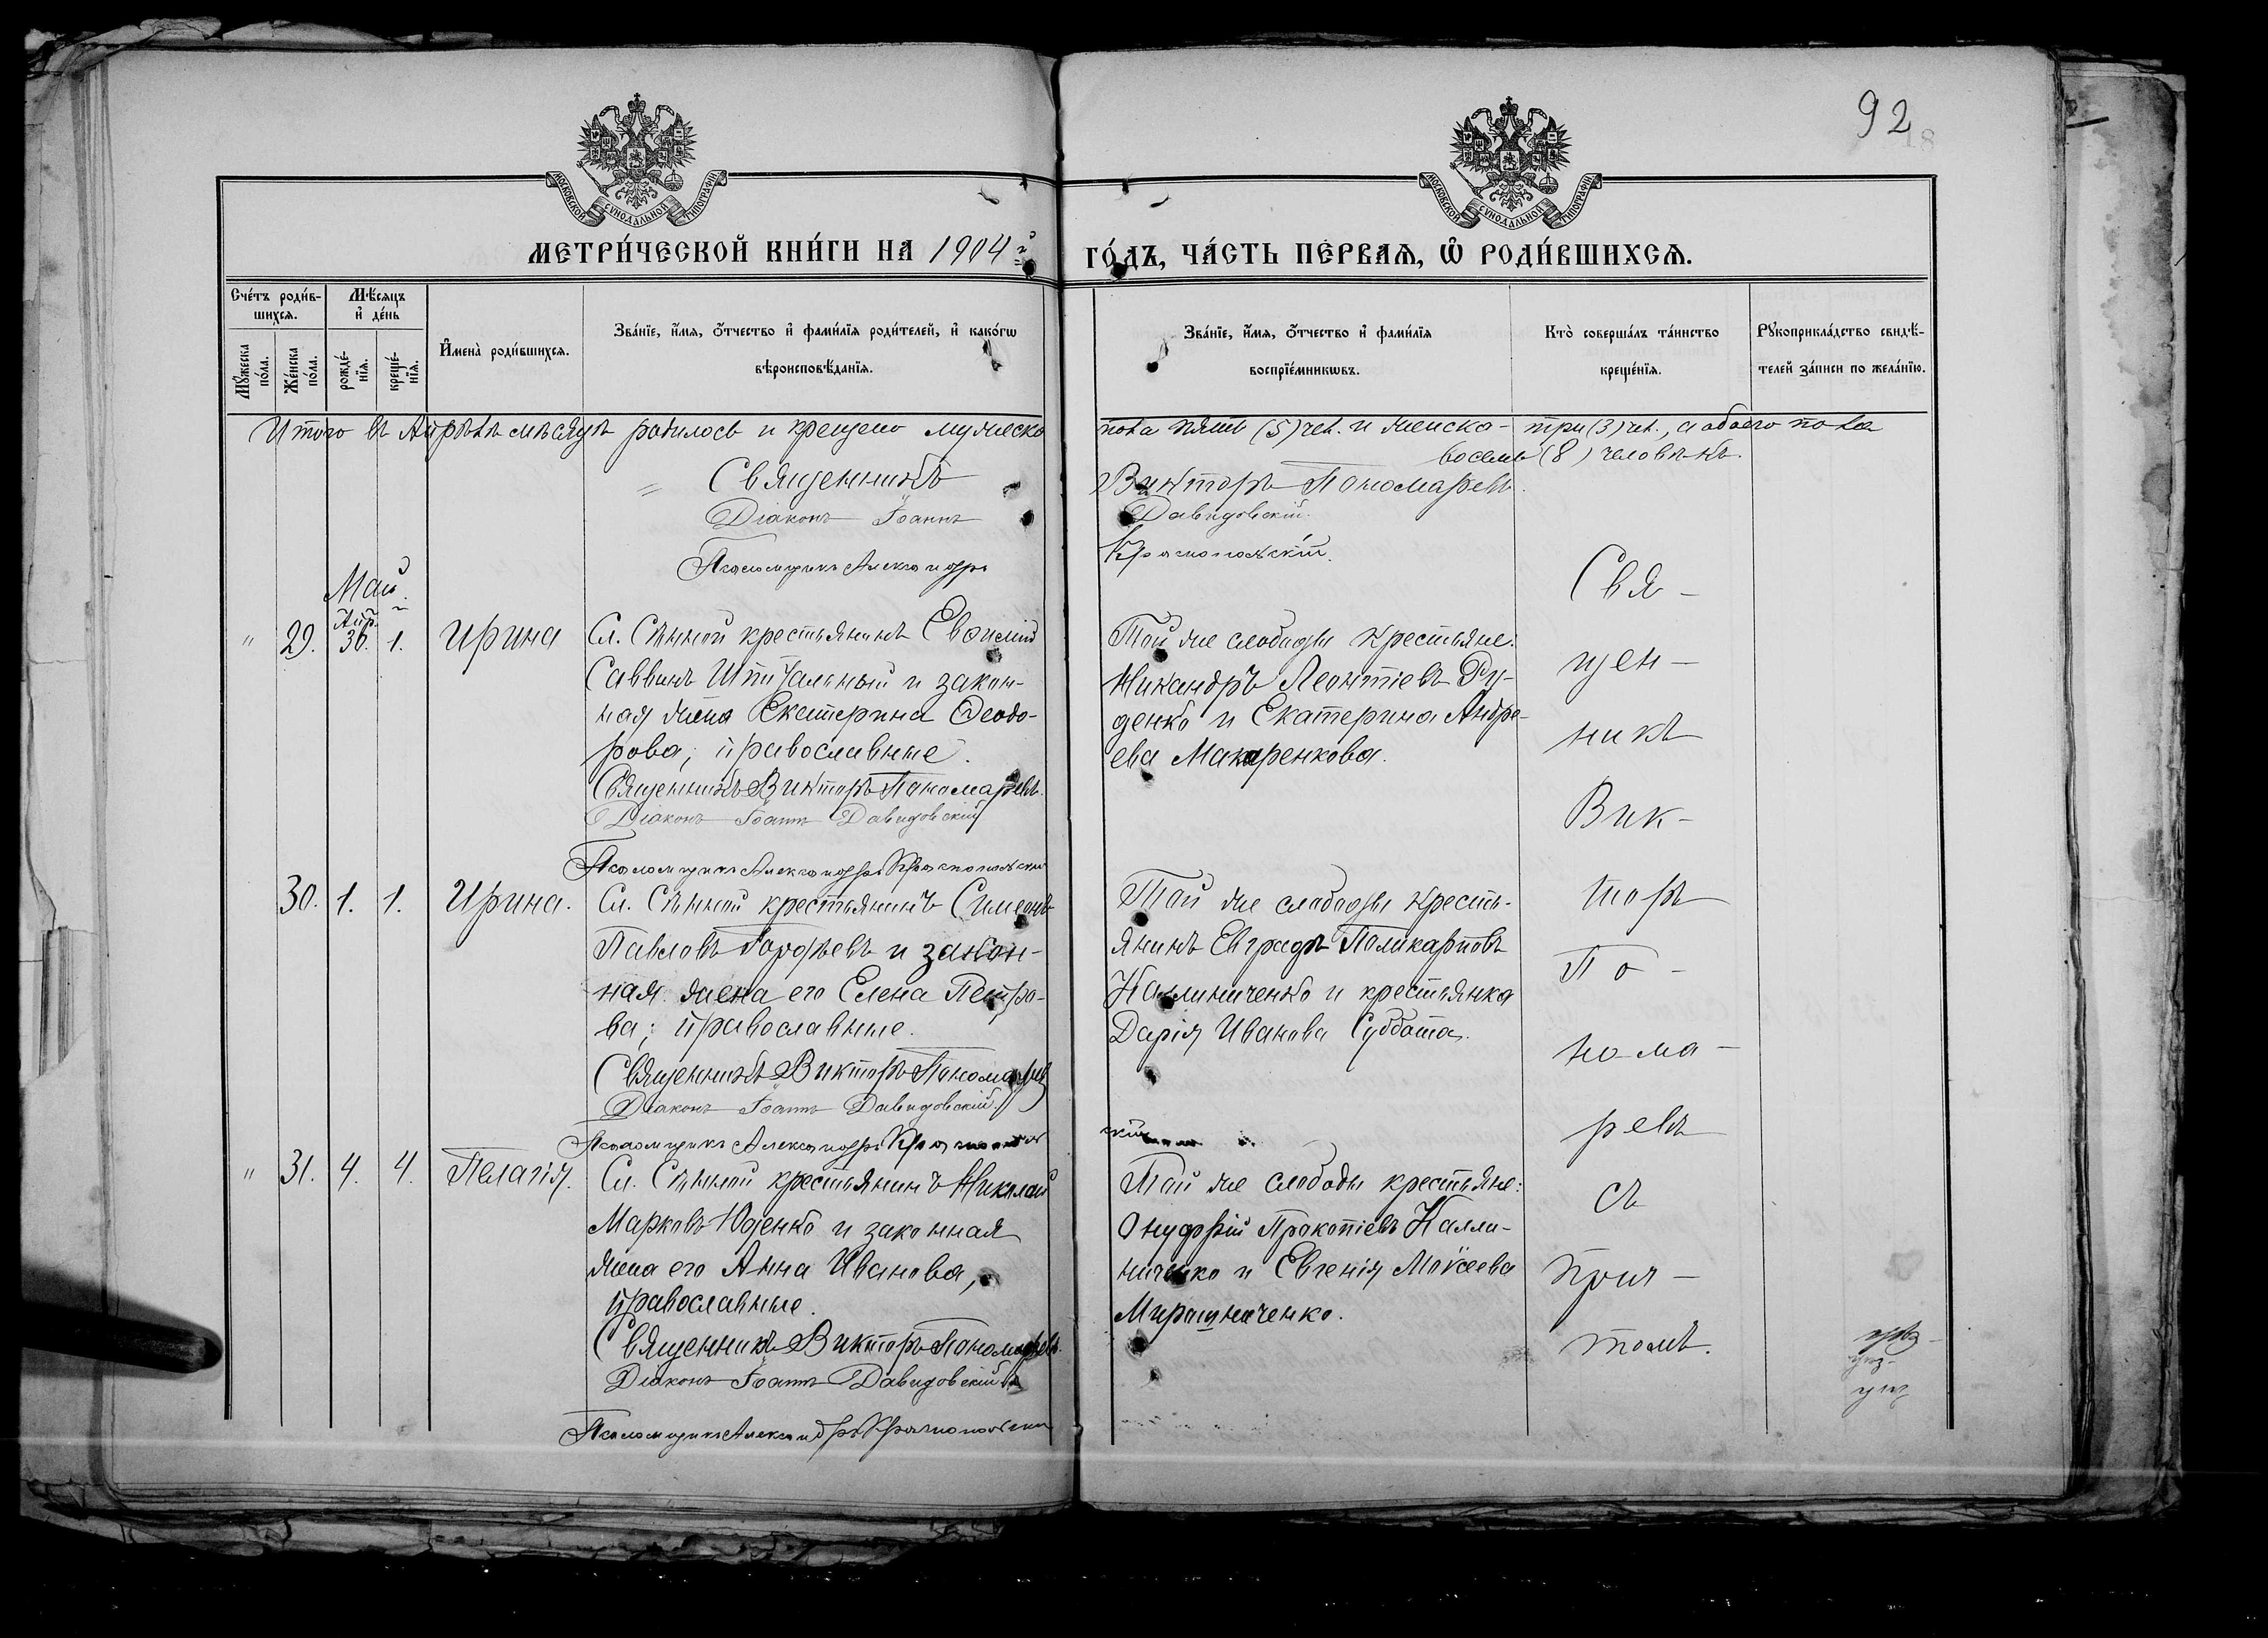 92
МОСКОВСКОЙ СѴНОДАЛЬНОЙ ТИПОГРАФІИ
МОСКОВСКОЙ СѴНОДАЛЬНОЙ ТИПОГРАФІИ
МЕТРИ́ЧЕСКОЙ КНИ́ГИ НА 1904 й ГО́ДЪ, ЧА́СТЬ ПЕ́РВАѦ, Ѽ РОДИ́ВШИХСѦ.
Сче́тъ роди́в-
шихся.
Мꙋ́жеска по́ла.
Же́нска по́ла.
Мѣ́сяцъ
и҆ де́нь
рожде́-
нїя.
креще́-
нїя.
И҆мена̀ роди́вшихся.
Зва́нїе, и҆́мя, ѻ҆́тчество и҆ фами́лїя роди́телей, и҆ како́гѡ
вѣроисповѣ́данїя.
Зва́нїе, и҆́мя, ѻ҆́тчество и҆ фами́лїя
воспрїе́мникѡвъ.
Кто̀ соверша́лъ та́инство
креще́нїя.
Рꙋкоприкла́дство свидѣ́-
телей за́писи по жела́нїю.
Итого въ Апрѣлѣ мѣсяцѣ родилось и крещено мужеска пола пять (5) чел. и женска - три (3) чел., а обоего пола
восемь (8) человѣкъ.
Священникъ Викторъ Пономаревъ.
Діаконъ Іоаннъ Давидовскій.
Псаломщикъ Александръ Краснопольскій.
Май.
Апр.
" 29. 30. 1. Ирина
Сл. Сѣнной крестьянинъ Евфимій
Саввинъ и закон-
ная жена Екатерина Ѳеодо-
рова; православные.
Священникъ Викторъ Пономаревъ.
Діаконъ Іоаннъ Давидовскій
Псаломщикъ Александръ Краснопольскій
Той же слободы крестьяне:
Никандръ Леонтіевъ Ру-
денко и Екатерина Андре-
ева Макаренкова.
30. 1. 1. Ирина.
Сл. Сѣнной крестьянинъ Симеонъ
Павловъ и закон-
ная жена его Елена Петро-
ва; православные.
Священникъ Викторъ Пономаревъ
Діаконъ Іоаннъ Давидовскій.
Псаломщикъ Александръ Краснопольскій
Той же слободы кресть-
янинъ Евграфъ Поликарповъ
Калиниченко и крестьянка
Дарія Иванова Суббота.
" 31. 4. 4. Пелагія.
Сл. Сѣнной крестьянинъ Николай
Марковъ Юденко и законная
жена его Анна Иванова,
православные.
Священникъ Викторъ Пономаревъ.
Діаконъ Іоаннъ Давидовскій
Псаломщикъ Александръ Краснопольскій
Той же слободы крестьяне:
Онуфрій Прокопіевъ Калли-
ниченко и Евгенія Моисеева
Мирошниченко.
Свя-
щен-
никъ
Вик-
торъ
По-
нома-
ревъ
съ
прич-
томъ.